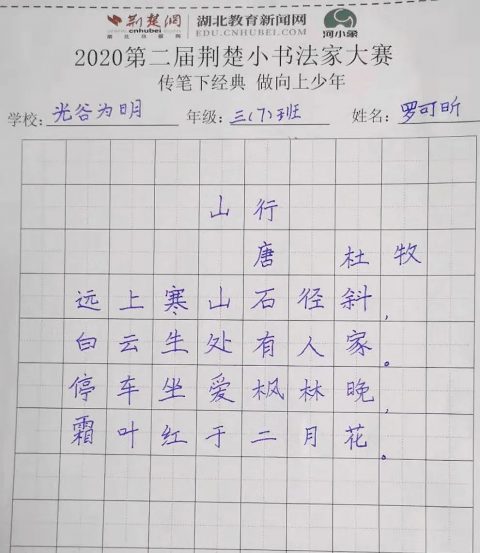 荆楚网 湖北教育新闻网 河小象
www.cnhubei.com EDU.CNHUBEI.COM
2020第二届荆楚小书法家大赛
传笔下经典 做向上少年
学校: 光谷为明 年级: 三(7)班 姓名: 罗可昕
山行
唐 杜牧
远上寒山石径斜,
白云生处有人家。
停车坐爱枫林晚,
霜叶红于二月花。